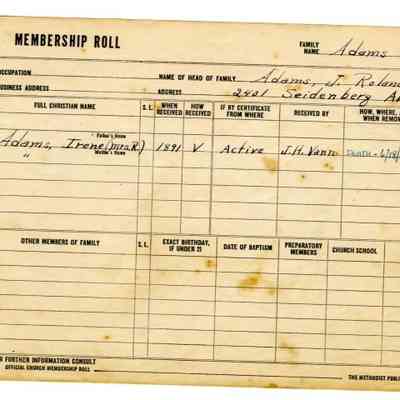 MEMBERSHIP ROLL
FAMILY NAME Adams
OCCUPATION
NAME OF HEAD OF FAMILY Adams, J. Roland
BUSINESS ADDRESS
ADDRESS 2401 Seidenberg Av
FULL CHRISTIAN NAME S.I. WHEN RECEIVED HOW RECEIVED IF BY CERTIFICATE FROM WHERE RECEIVED BY HOW, WHERE, WHEN REMOV
Father's Name
Adams, Irene (Mrs. R.) 1891 V Active J.H. Vann DEATH - 6/18/
" Mother's Name
OTHER MEMBERS OF FAMILY S.I. EXACT BIRTHDAY, IF UNDER 21 DATE OF BAPTISM PREPARATORY MEMBERS CHURCH SCHOOL
R FURTHER INFORMATION CONSULT
OFFICIAL CHURCH MEMBERSHIP ROLL
THE METHODIST PUBLI